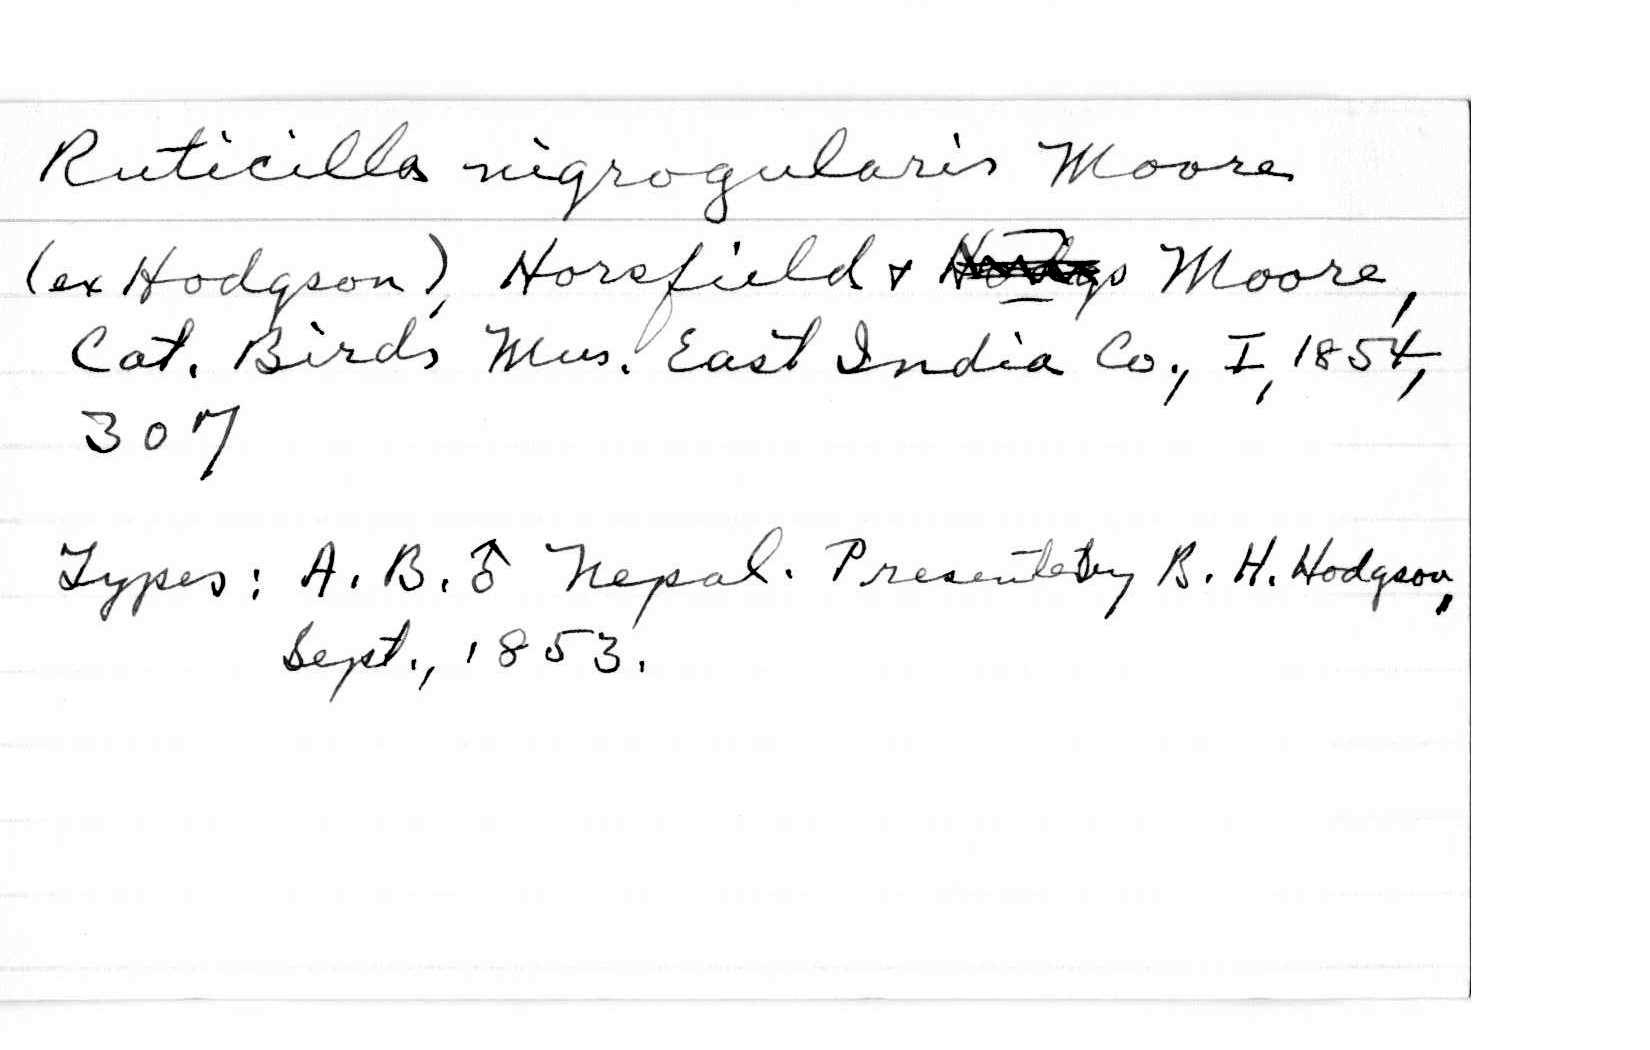 Ruticilla nigrogularis Moore
(ex Hodgson), Horsfield & Moore,
Cat. Birds Mus. East India Co., I, 1854,
307
Types: A. B. ♂ Nepal. Presented by B. H. Hodgson,
Sept., 1853.